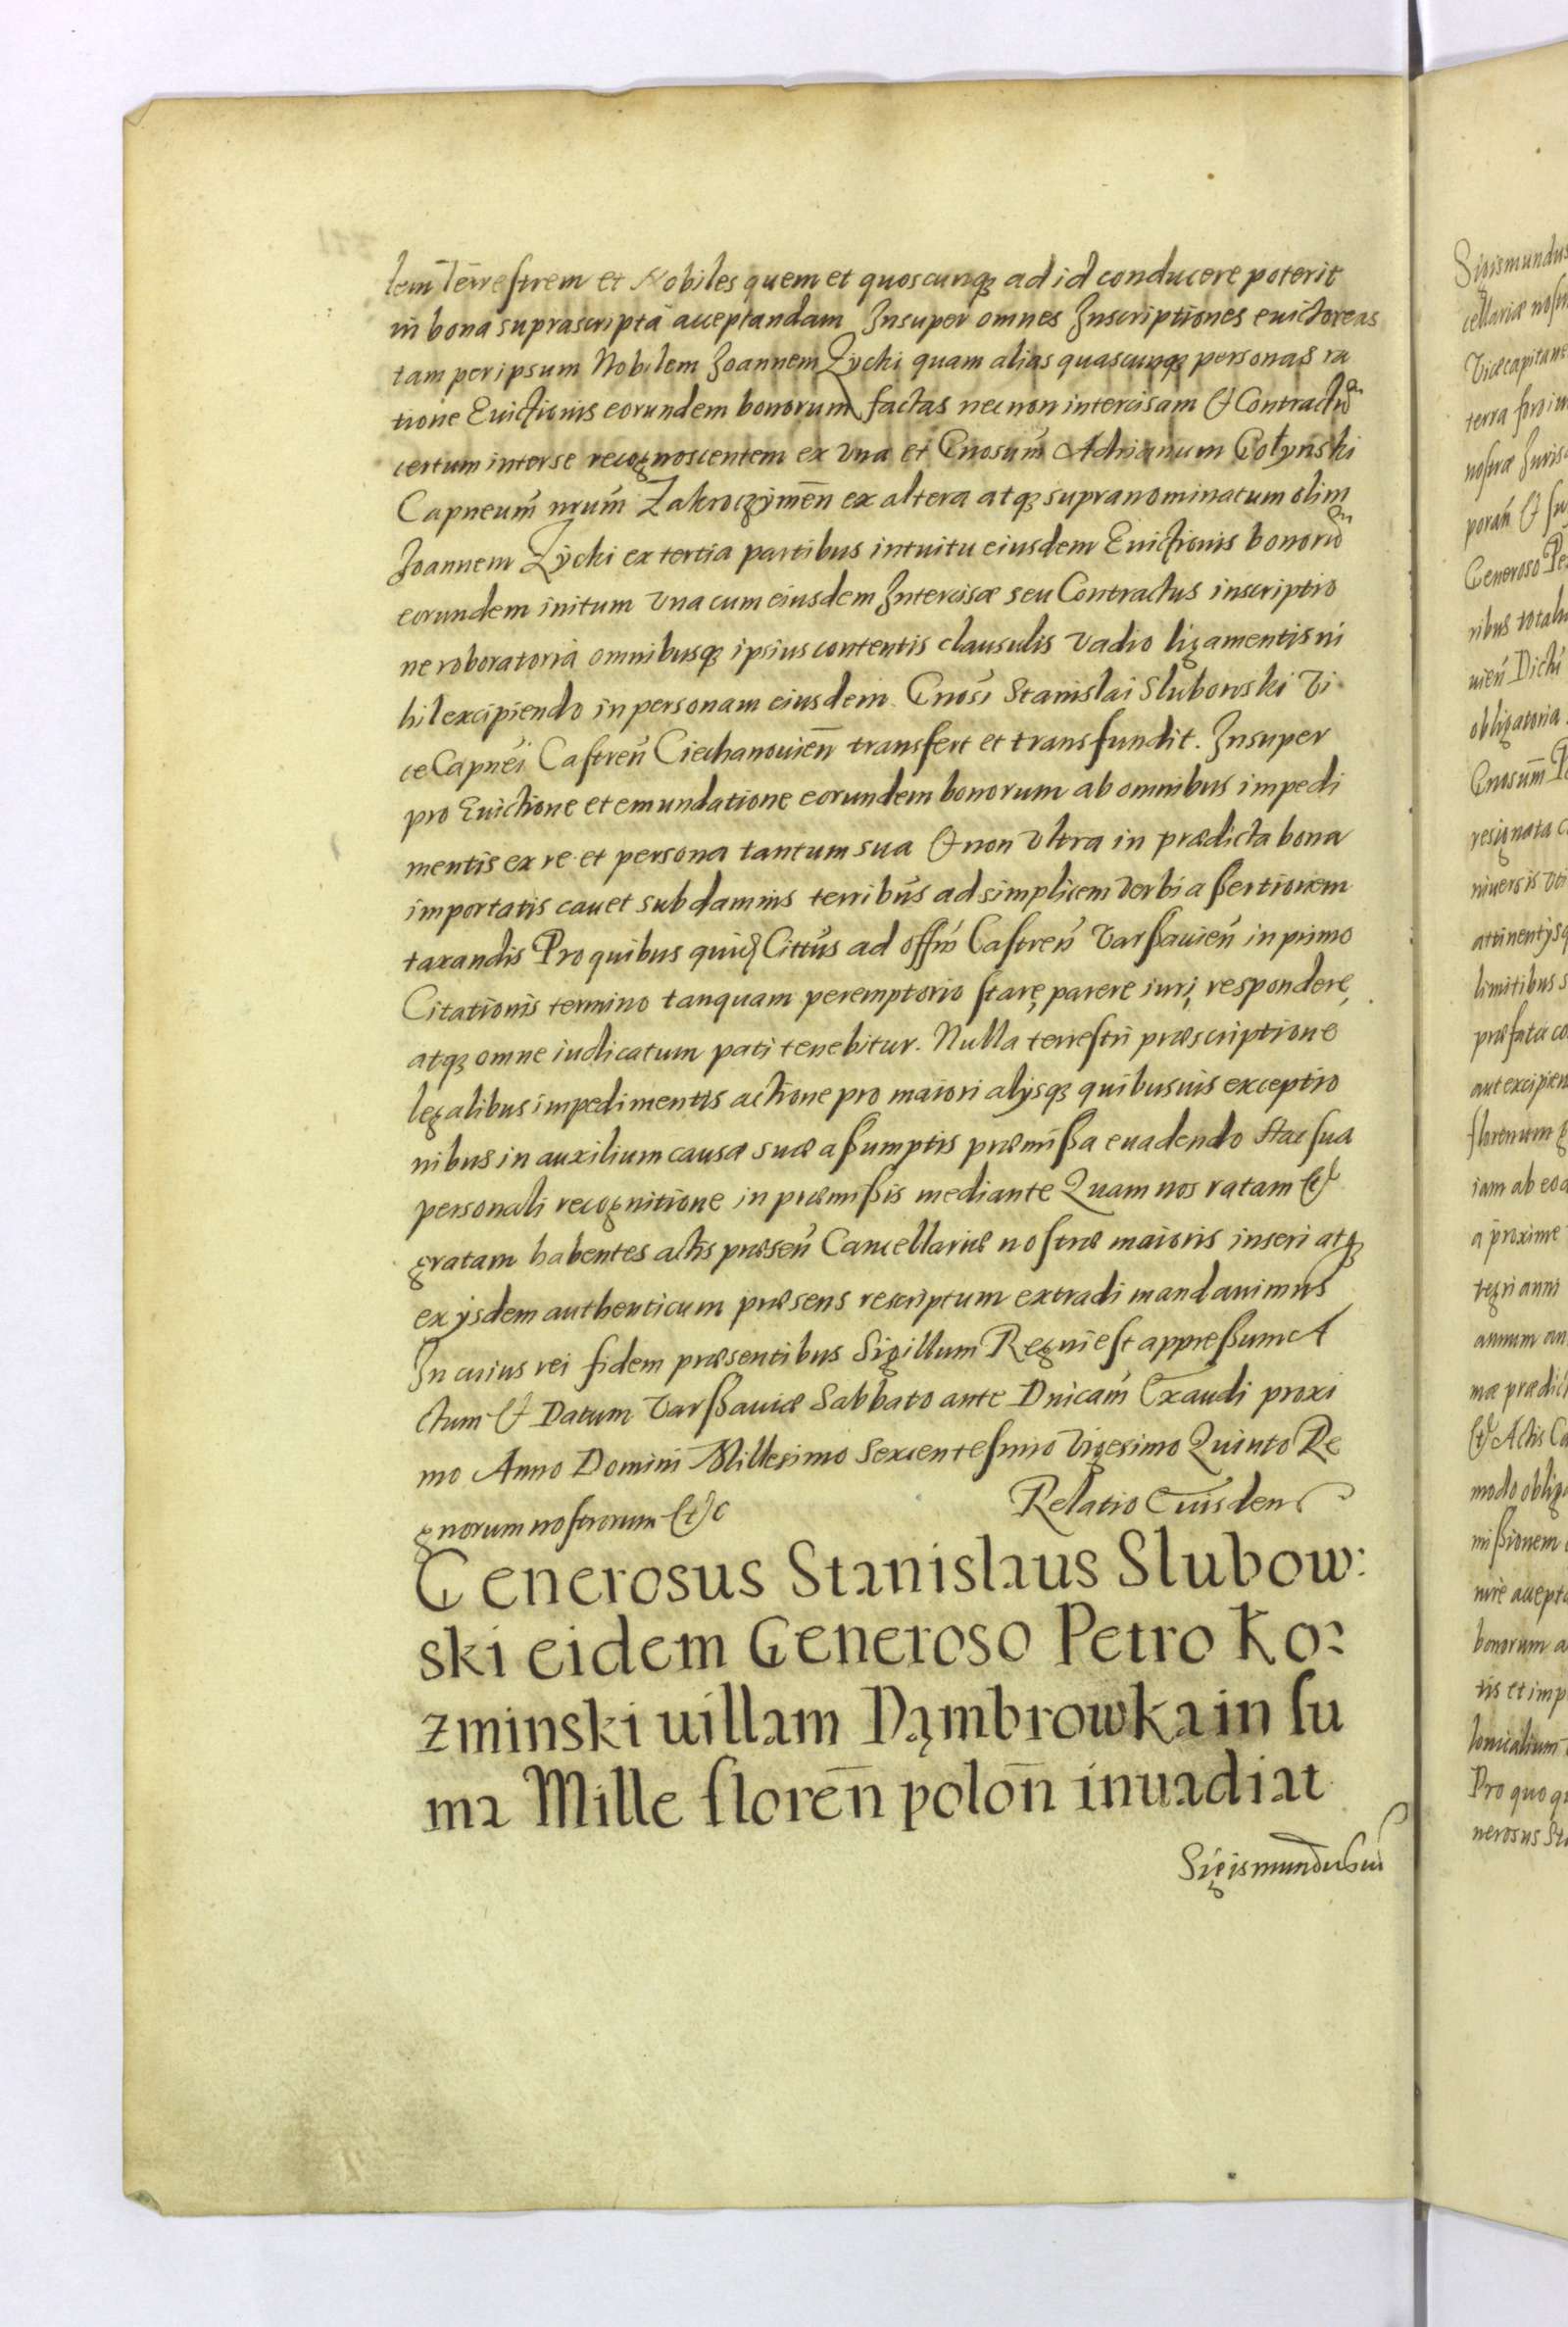 lem Terrestrem et Nobiles quem et quoscunq₃ ad id conducere poterit
in bona suprascripta acceptandam Insuper omnes Inscriptiones euictoreas
tam per ipsum Nobilem Joannem Zÿcki quam alias quascunq₃ personas ra
tione Euictionis eorundem bonorum factas nec non intercisam et Contractũ
certum inter se recognoscentem ex vna et Gnosum̃ Adrianum Gołynski
Capneum̃ nrum̃ Zakroczÿmen̄ ex altera atq₃ supranominatum olim
Joannem Zÿcki ex tertia partibus intuitu eiusdem Euictionis bonorũ
eorundem initum vna cum eiusdem Intercisæ seu Contractus inscriptio
ne roboratoria omnibusq₃ ipsius contentis clausulis vadio ligamentis ni
hil excipiendo in personam eiusdem Gnosi Stanislai Slubowski Vi
ce Capnei Castren̄ Ciechanouien̄ transfert et transfundit. Insuper
pro Euictione et emundatione eorundem bonorum ab omnibus impedi
mentis ex re et persona tantum sua et non vltra in prædicta bona
importatis cauet sub damnis terribus ad simplicem verbi aßertionem
taxandis Pro quibus Cittus ad offm̃ Castren̄ Varßauien̄ in primo
Citationis termino tanquam peremptorio stare, parere iuri, respondere,
atq₃ omne iudicatum pati tenebitur. Nulla terrestri præscriptione
legalibus impedimentis actione pro maiori alijsq₃ quibusuis exceptio
nibus in auxilium causæ suæ aßumptis præmißa euadendo Hac sua
personali recognitione in præmißis mediante Quam nos ratam et
gratam habentes actis præsen̄ Cancellariæ nostræ maioris inseri atq₃
ex ijsdem authenticum præsens rescriptum extradi mandauimus
In cuius rei fidem præsentibus Sigillum Regni est appreßum A
ctum et Datum Varßauiæ Sabbato ante Dnicam̃ Exaudi proxi
mo Anno Domini Millesimo Sexcentesimo Vigesimo Quinto Re
gnorum nostrorum etc Relatio Eiusdem
Generosus Stanislaus Slubow:
ski eidem Generoso Petro Ko:
zminski uillam Dąmbrowka in su
ma Mille floren̄ polon̄ inuadiat
Sigismundus
Sigismundus
cellariæ
Vicecapitane
terra
nostræ
poran̄ et su
Generoso Pe
ribus totalu
uien̄ Dictũ
obligatoria
Gnosum̃
resignata
niuersis
attinentijsq
limitibus s
præfata co
aut excipien
florenum
iam ab eo
a proxime
tegri anni
annum
mæ prædict
et Actis Ca
modo oblig
mißionem
mre accepta
bonorum a
tis et imp
Pro quo
nerosus Sta